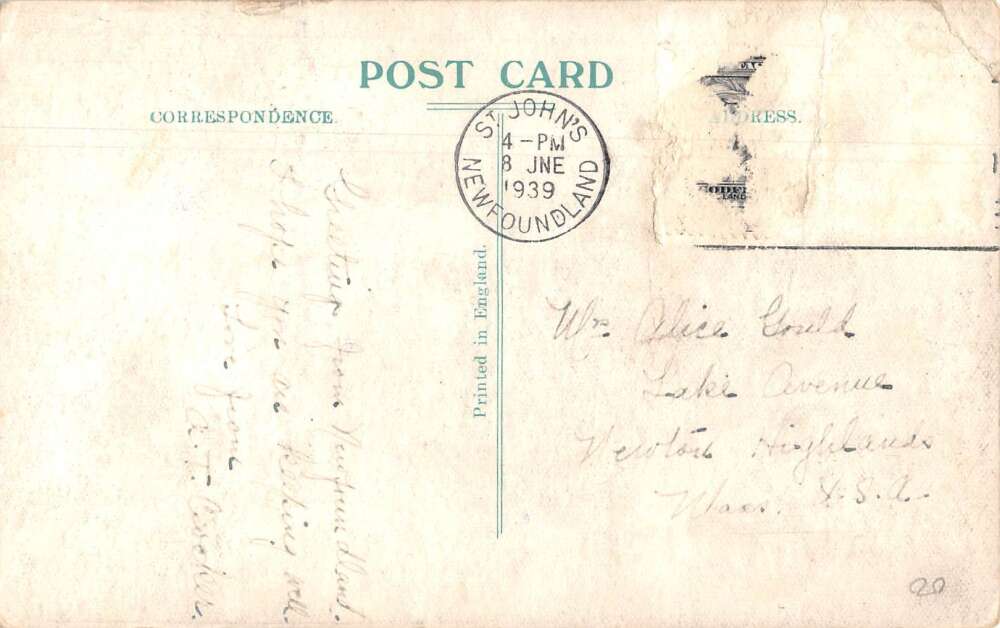 POST CARD
CORRESPONDENCE.
ADDRESS.
ST. JOHN'S
4 - PM
8 JNE
1939
NEWFOUNDLAND
LAND
Greetings from Newfoundland.
I hope you are keeping well
Love from
Printed in England.
Mrs Alice Gould
Lake Avenue
Newton Highlands
Mass. U.S.A.
20